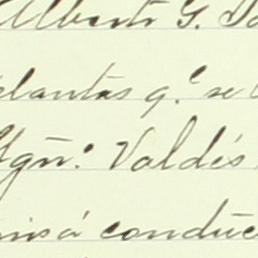 Alberto G. Do
elantas q.e se
Mgñ.r Valdés
misá conduc